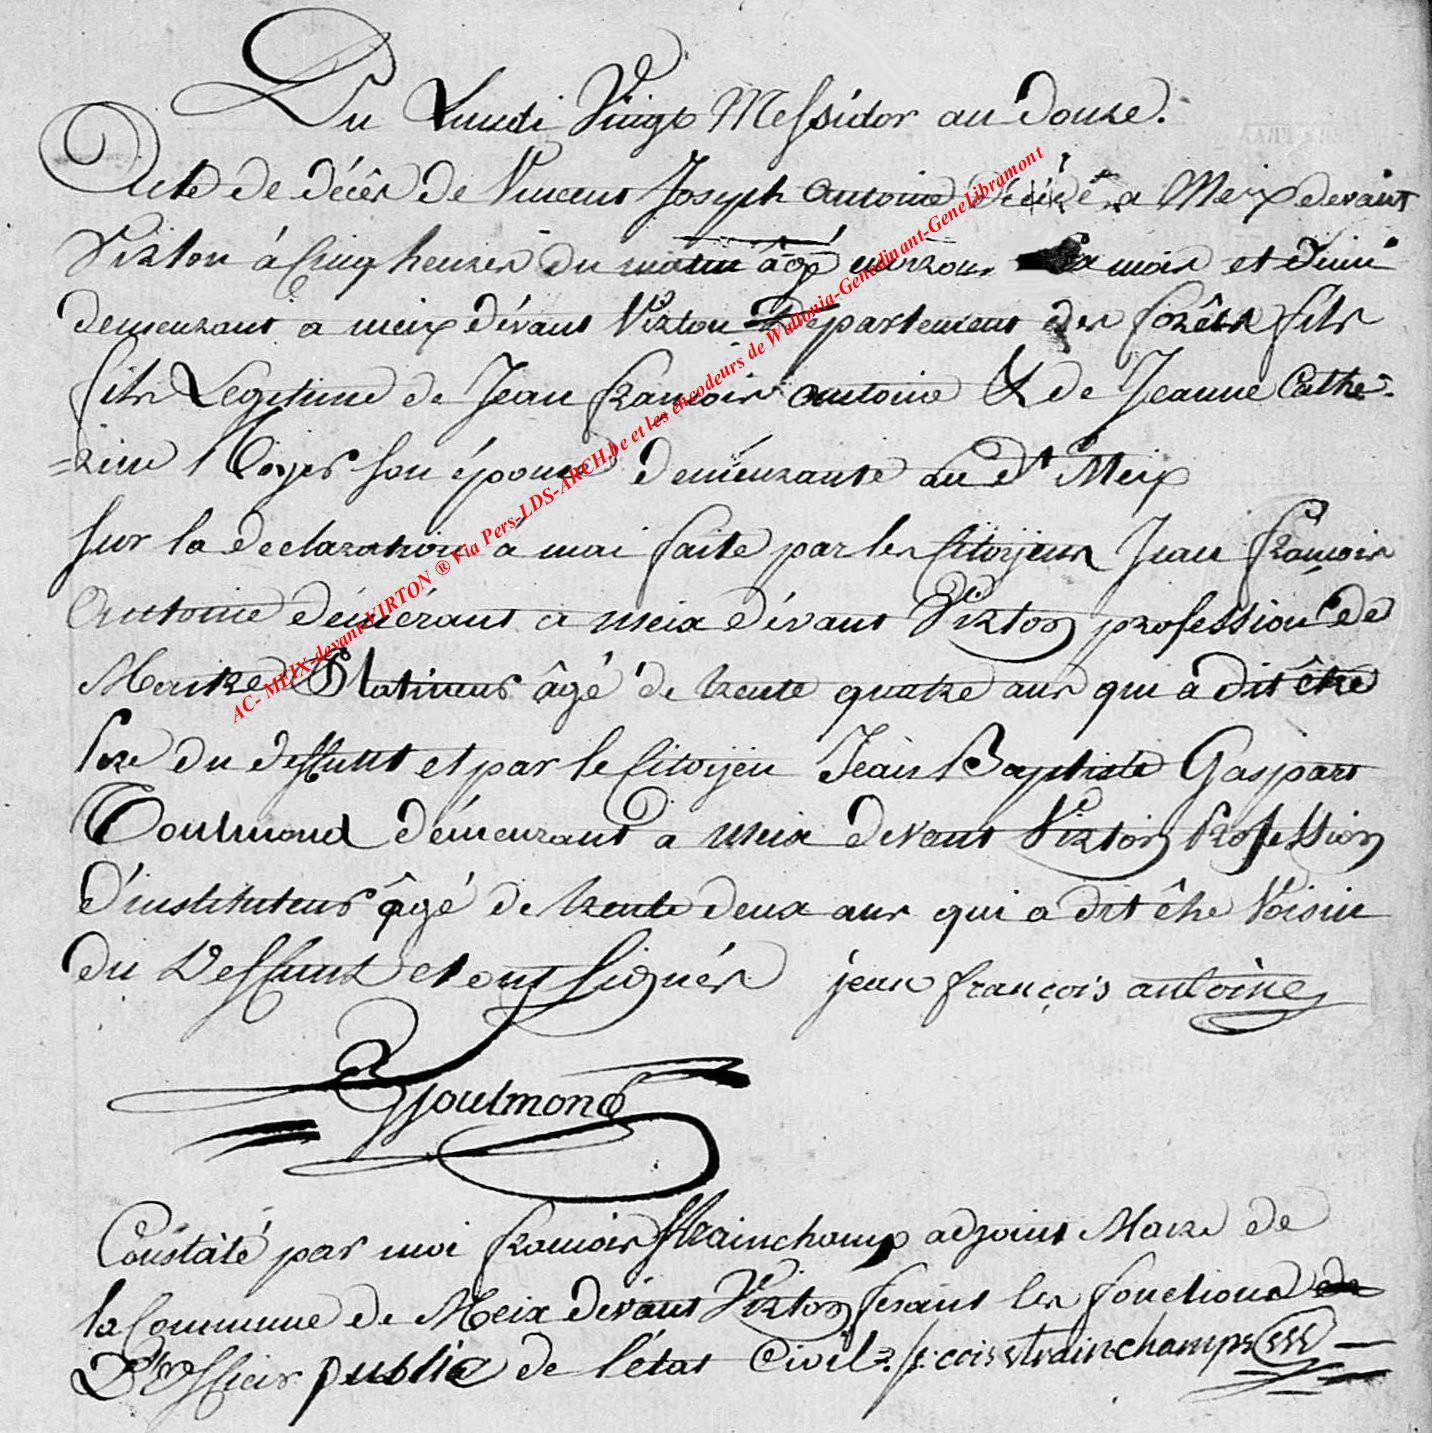 Du Lundi Vingt Messidor an douze.
Acte de décès de Vincent Joseph Antoine Décédé a Meix devant
Virton à Cinq heures du matin âgé environ mois et demi
demeurant a meix dévant Virton Département des forêts fils
fils Légitime de Jean françois Antoine & de Jeanne Cathe-
=rine son épouse demeurante au dt Meix
Sur la declaration à moi faite par les Citoyens Jean françois
Antoine démeurant a Meix dévant Virton profession de
Platineur âgé de trente quatre ans qui à dit être
Pere du deffunt et par le Citoyen Jean Baptiste Gaspart
Toulmond démeurant a Meix devant Virton Profession
d'instituteur âgé de trente deux ans qui a dit être Voisin
du Deffunt et ont signés jean françois antoine
Toulmond
Constaté par moi françois Strainchamp adjoint Maire de
la Commune de Meix dévant Virton fesant les fonctions de
D'Officier public de l'état Civil. strainchamps
AC- MEIX-devant-VIRTON ® Via Pers-LDS-ARCH.be et les encodeurs de Wallonia-Genedinant-GeneLibramont